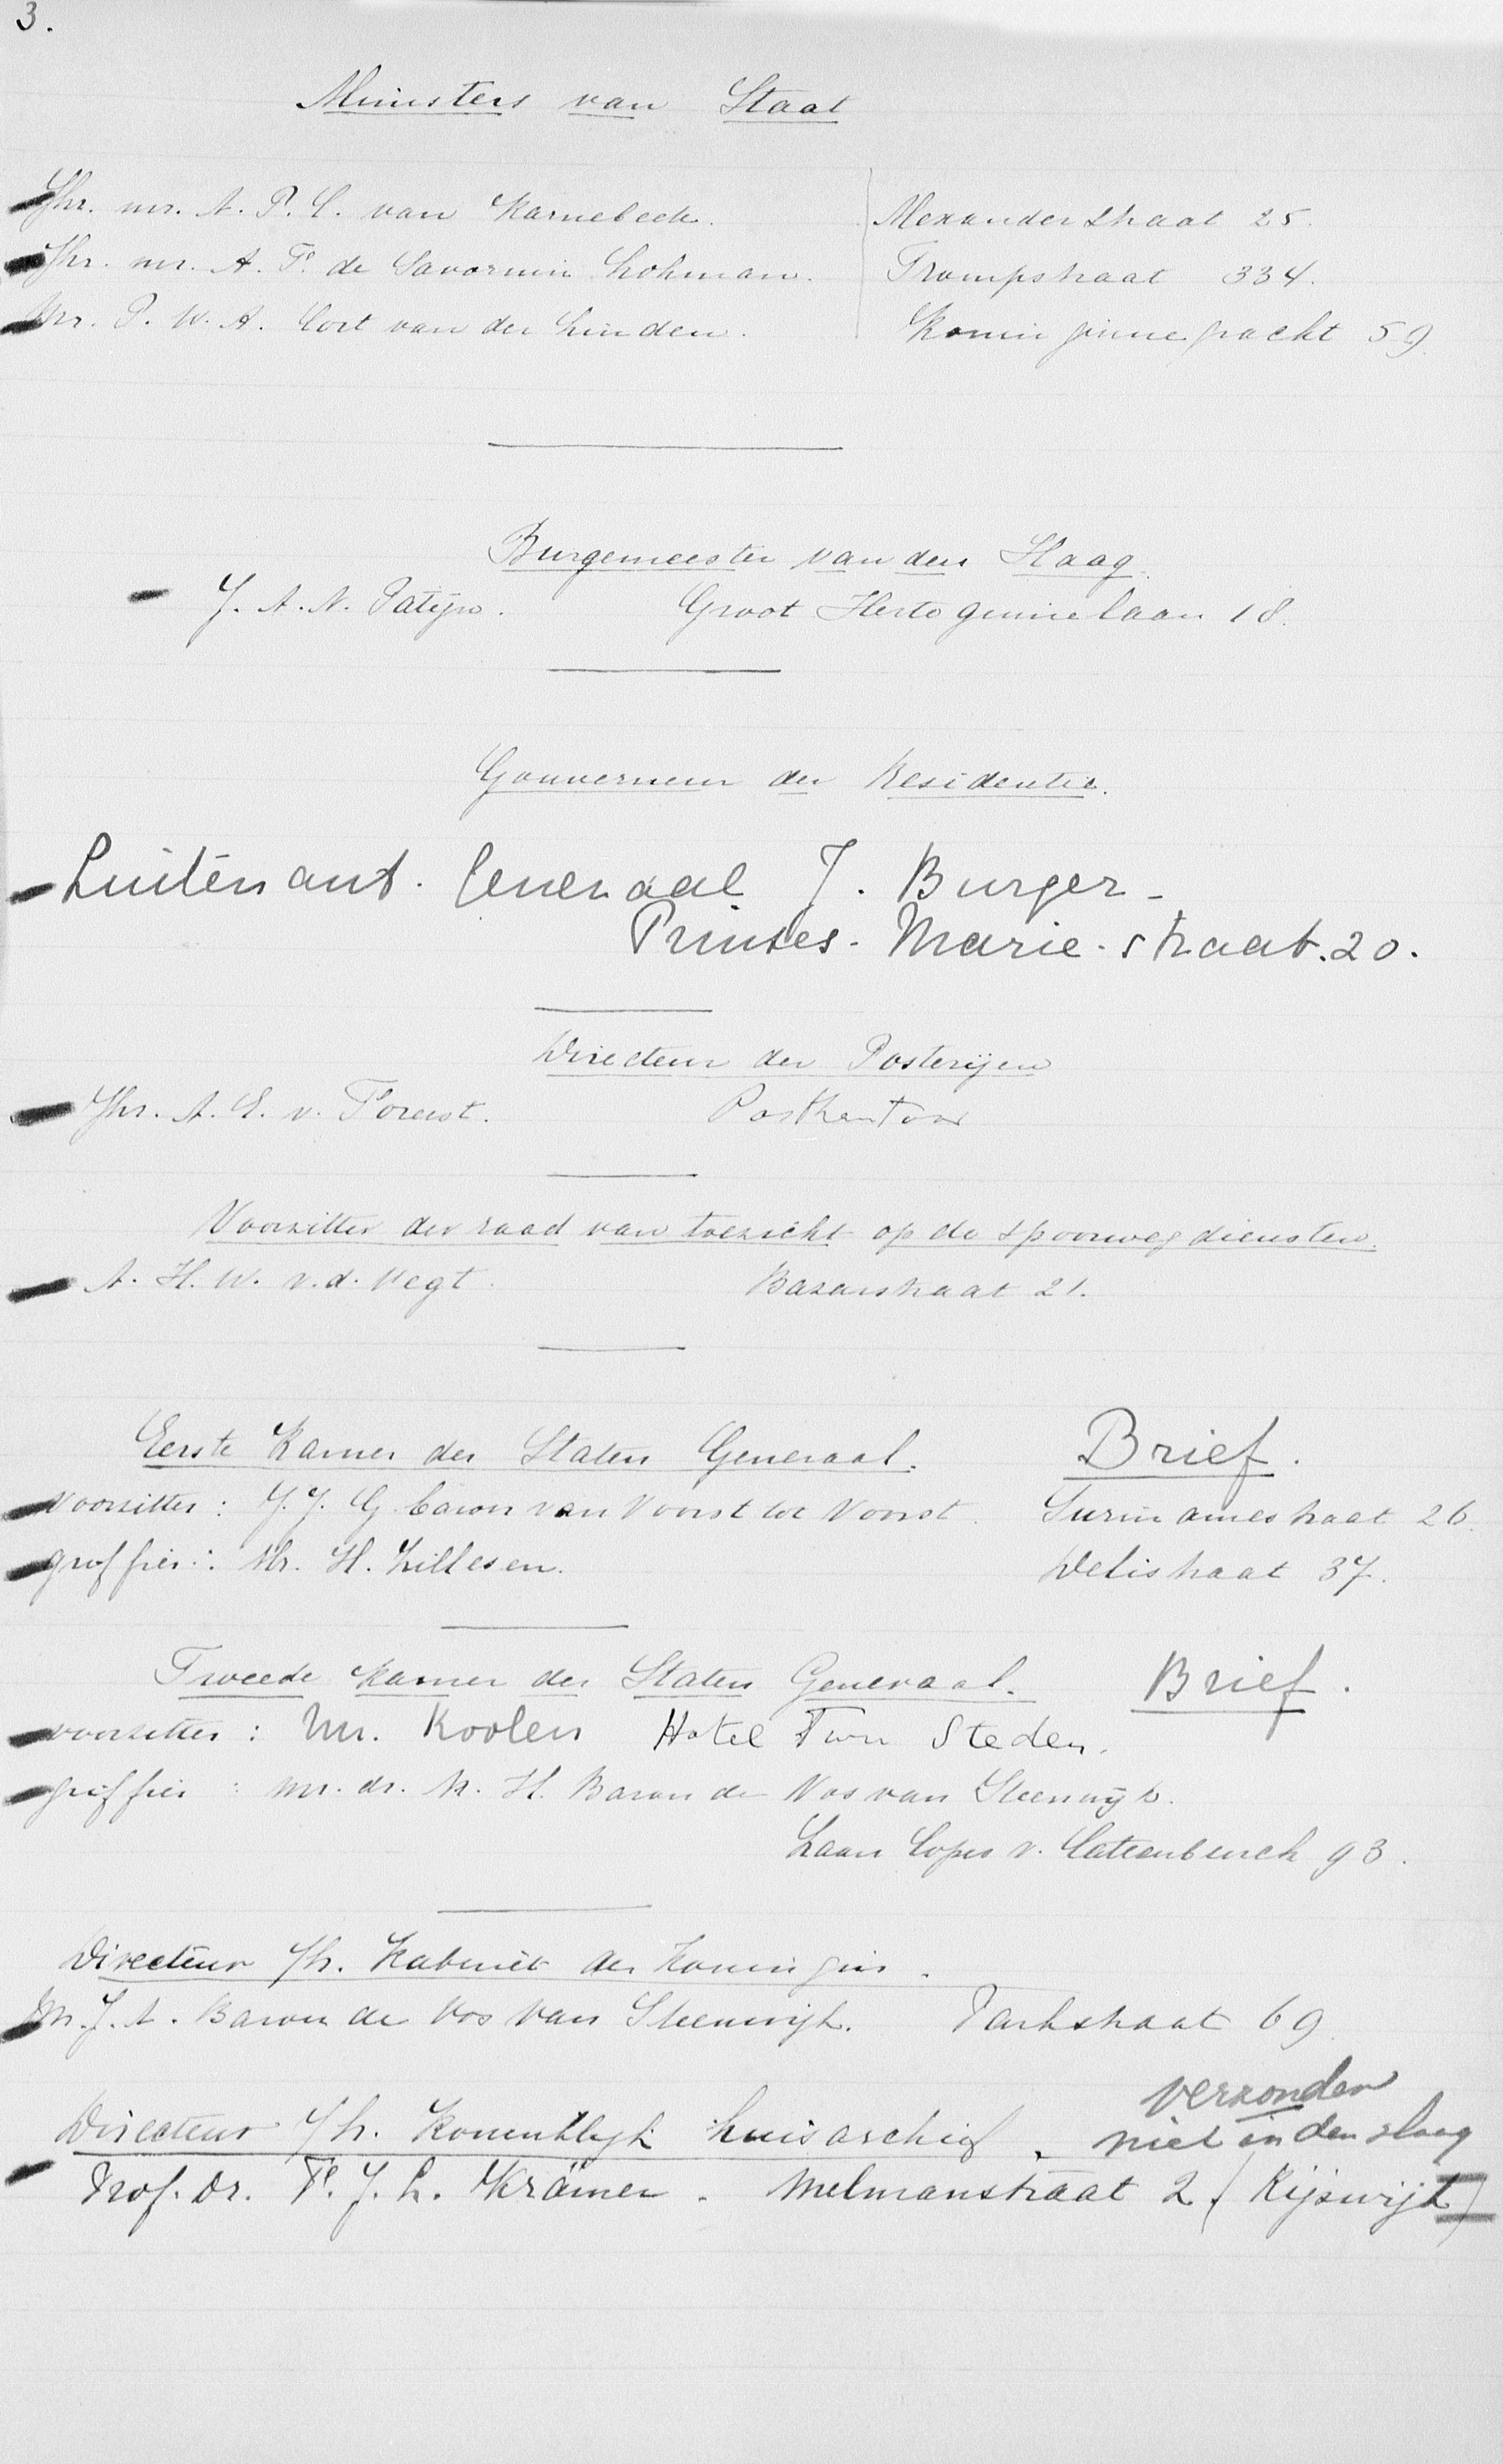 3.
Ministers van Staat
Jhr. mr. A. P. C. van Karnebeek. Alexanderstraat 25.
Jhr. mr. A. F. de Savornin Lohman. Trompstraat 334.
Mr. P. W. A. Cort van der Linden. Koninginnegracht 59.
Burgemeester van den Haag.
J. A. N. Patijn. Groot Hertoginnelaan 18.
Gouverneur der Residentie.
Luitenant. Generaal J. Burger -
Prinses - Marie - straat. 20.
Directeur der Posterijen
Jhr. A. E. v. Foreest. Postkantoor
Voorzitter der raad van toezicht op de spoorwegdiensten.
A. H. W. v. d. Vegt. Bazarstraat 21.
Eerste Kamer der Staten Generaal. Brief.
Voorzitter: J. J. G. baron van Voorst tot Voorst. Surinamestraat 26.
griffier: Mr. H. Zillesen. Delistraat 37.
Tweede Kamer der Staten Generaal. Brief.
voorzitter: Mr. Koolen Hotel Twee Steden.
griffier: mr. dr. H. Baron de Vos van Steenwijk.
Laan Copes v. Cattenburch 93.
Directeur v/h. Kabinet der Koningin.
Mr. J. A. Baron de Vos van Steenwijk. Parkstraat 69
Directeur v/h. Koninklijk huisarchief. verzonden
niet in den Haag
Prof. Dr. F. J. L. Krämer. Melmanstraat 2 (Rijswijk)